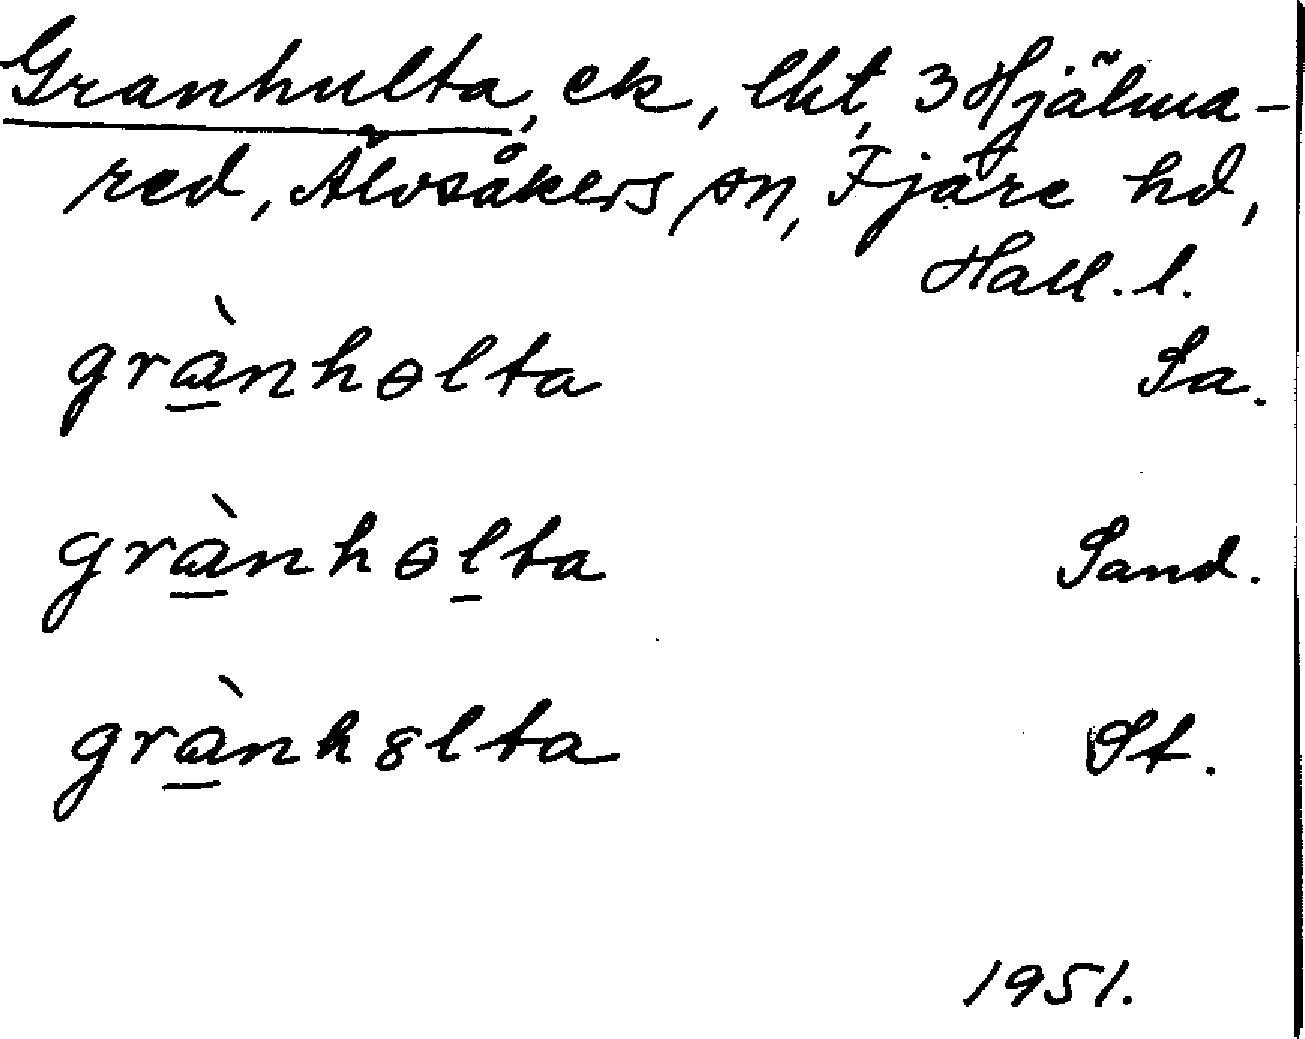 Granhulta, ek, lht, 3 Hjälma-
red, Älvsåkers sn, Fjäre hd,
Hall. l.
grànhɵlta Sa.
grànhɵlta Sand.
grành8lta St.
1951.